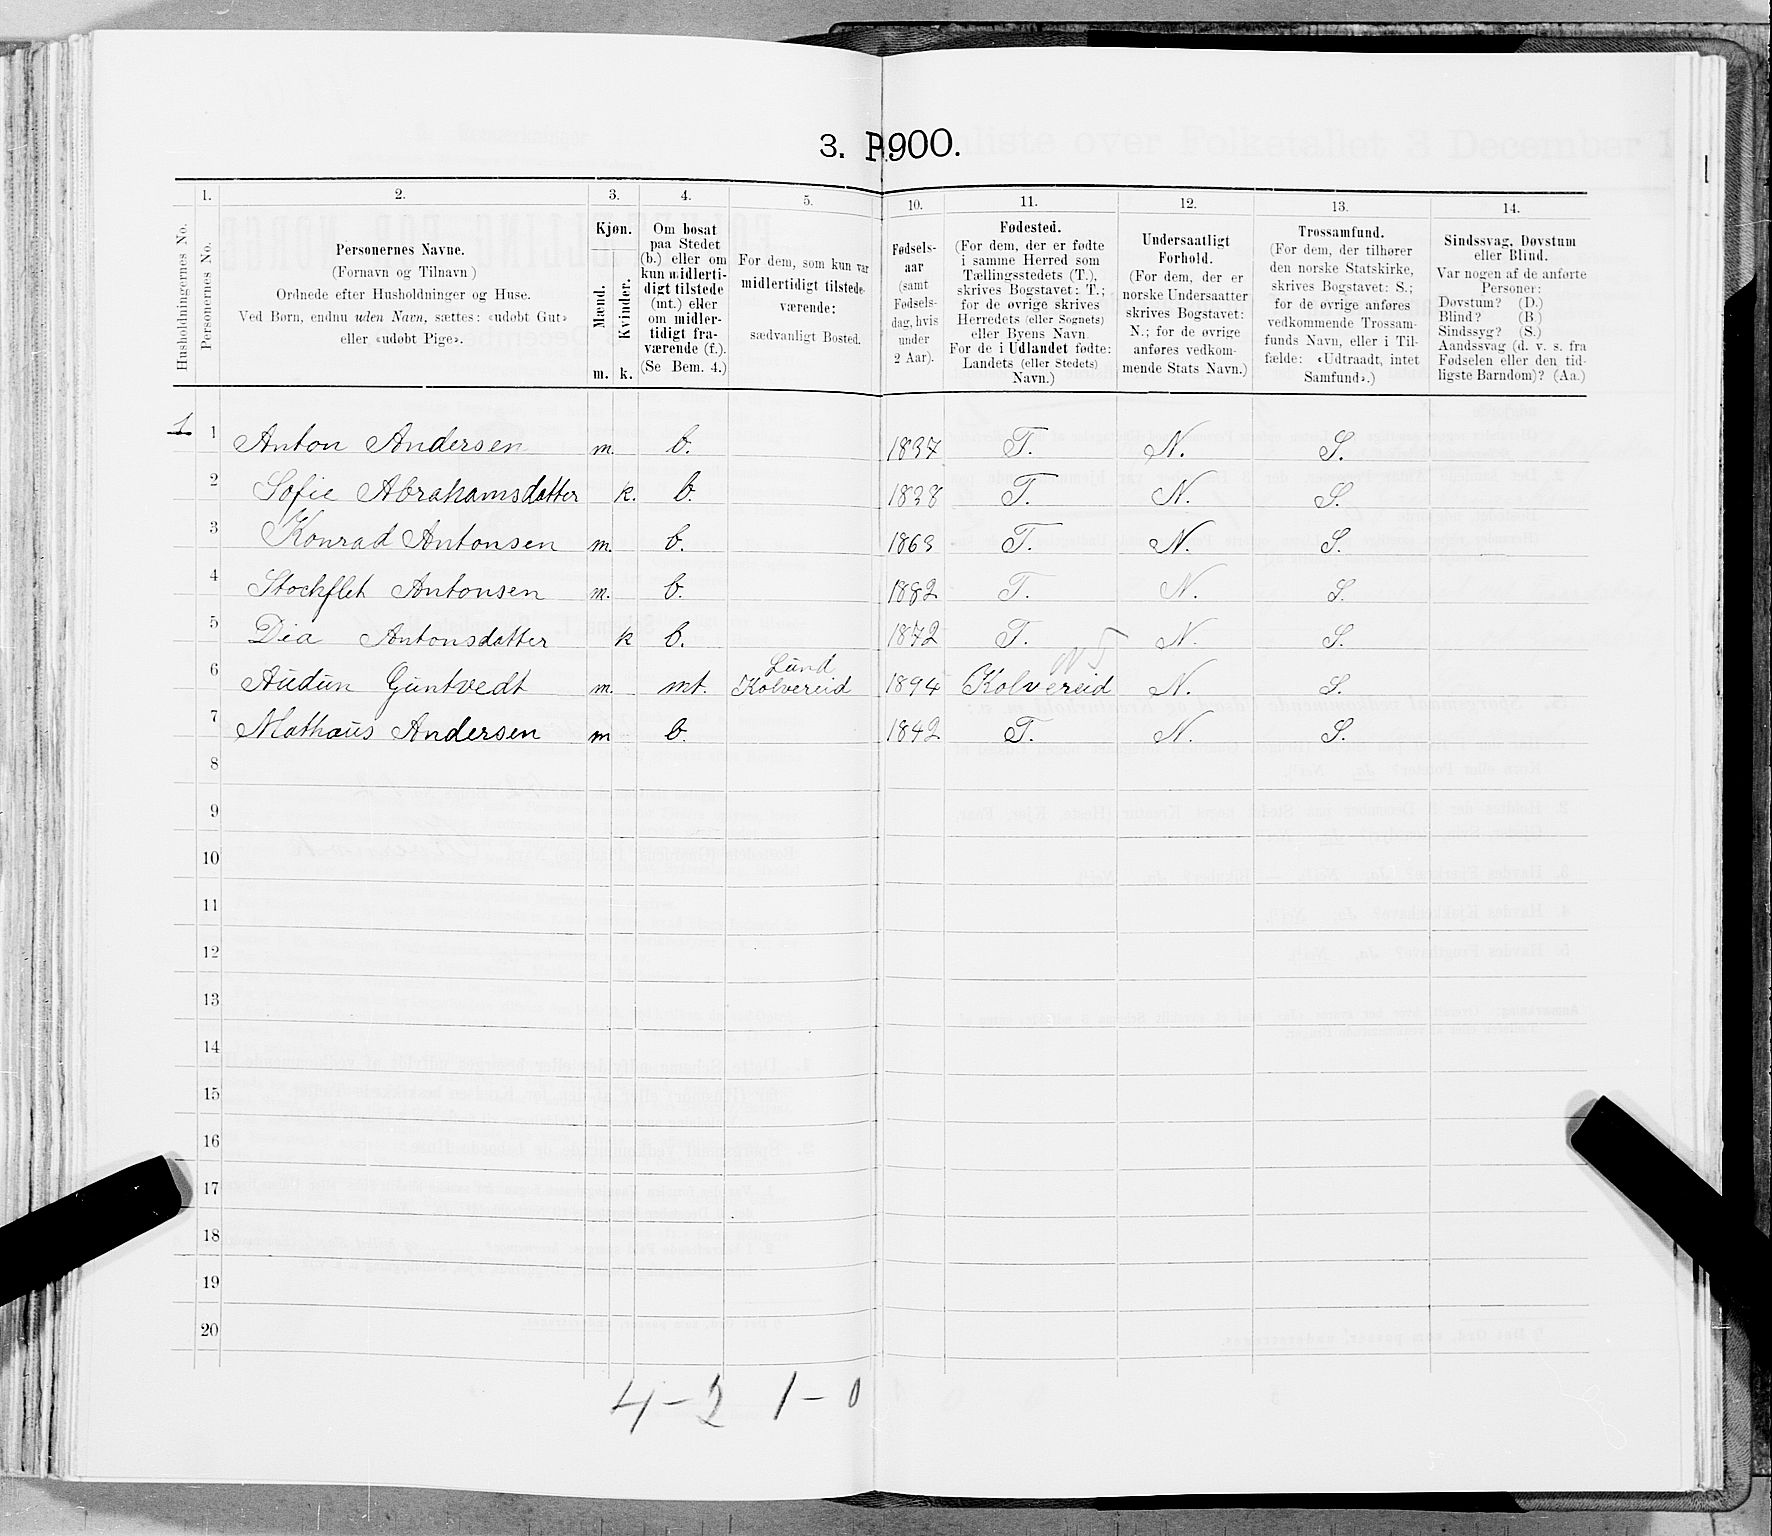 3. P.900.
1. 2. 3. 4. 5. 10. 11. 12. 13. 14.
Husholdningernes No.
Personernes No.
Personernes Navne.
(Fornavn og Tilnavn)
Ordnede efter Husholdninger og Huse.
Ved Børn, endnu uden Navn, sættes: «udøbt Gut»
eller «udøbt Pige».
Kjøn.
Mænd.
Kvinder.
m. k.
Om bosat
paa Stedet
(b.) eller om
kun midlerti-
digt tilstede
(mt.) eller
om midler-
tidigt fra-
værende (f.).
(Se Bem. 4.)
For dem, som kun var
midlertidigt tilstede-
værende:
sædvanligt Bosted.
Fødsels-
aar
(samt
Fødsels-
dag, hvis
under
2 Aar).
Fødested.
(For dem, der er fødte
i samme Herred som
Tællingsstedets (T.),
skrives Bogstavet: T.;
for de øvrige skrives
Herredets (eller Sognets)
eller Byens Navn
For de i Udlandet fødte:
Landets (eller Stedets)
Navn.)
Undersaatligt
Forhold.
(For dem, der er
norske Undersaatter
skrives Bogstavet:
N.; for de øvrige
anføres vedkom-
mende Stats Navn.)
Trossamfund.
(For dem, der tilhører
den norske Statskirke,
skrives Bogstavet: S.;
for de øvrige anføres
vedkommende Trossam-
funds Navn, eller i Til-
fælde: «Udtraadt, intet
Samfund».)
Sindssvag, Døvstum
eller Blind.
Var nogen af de anførte
Personer:
Døvstum? (D.)
Blind? (B.)
Sindssyg? (S.)
Aandssvag (d. v. s. fra
Fødselen eller den tid-
ligste Barndom)? (Aa.)
1 1 Anton Andersen m. b. 1837 T. N. S.
2 Sofie Abrahamsdatter k. b. 1838 T. N. S.
3 Konrad Antonsen m. b. 1863 T. N. S.
4 Stockflet Antonsen m. b. 1882 T. N. S.
5 Dia Antonsdatter k b. 1872 T. N. S.
Lund
6 Audun Guntvedt m. mt. Kolvereid 1894 Kolvereid N. S.
7 Mathæus Andersen m b. 1842 T. N. S.
8
9
10
11
12
13
14
15
16
17
18
19
20
4-2 1-0